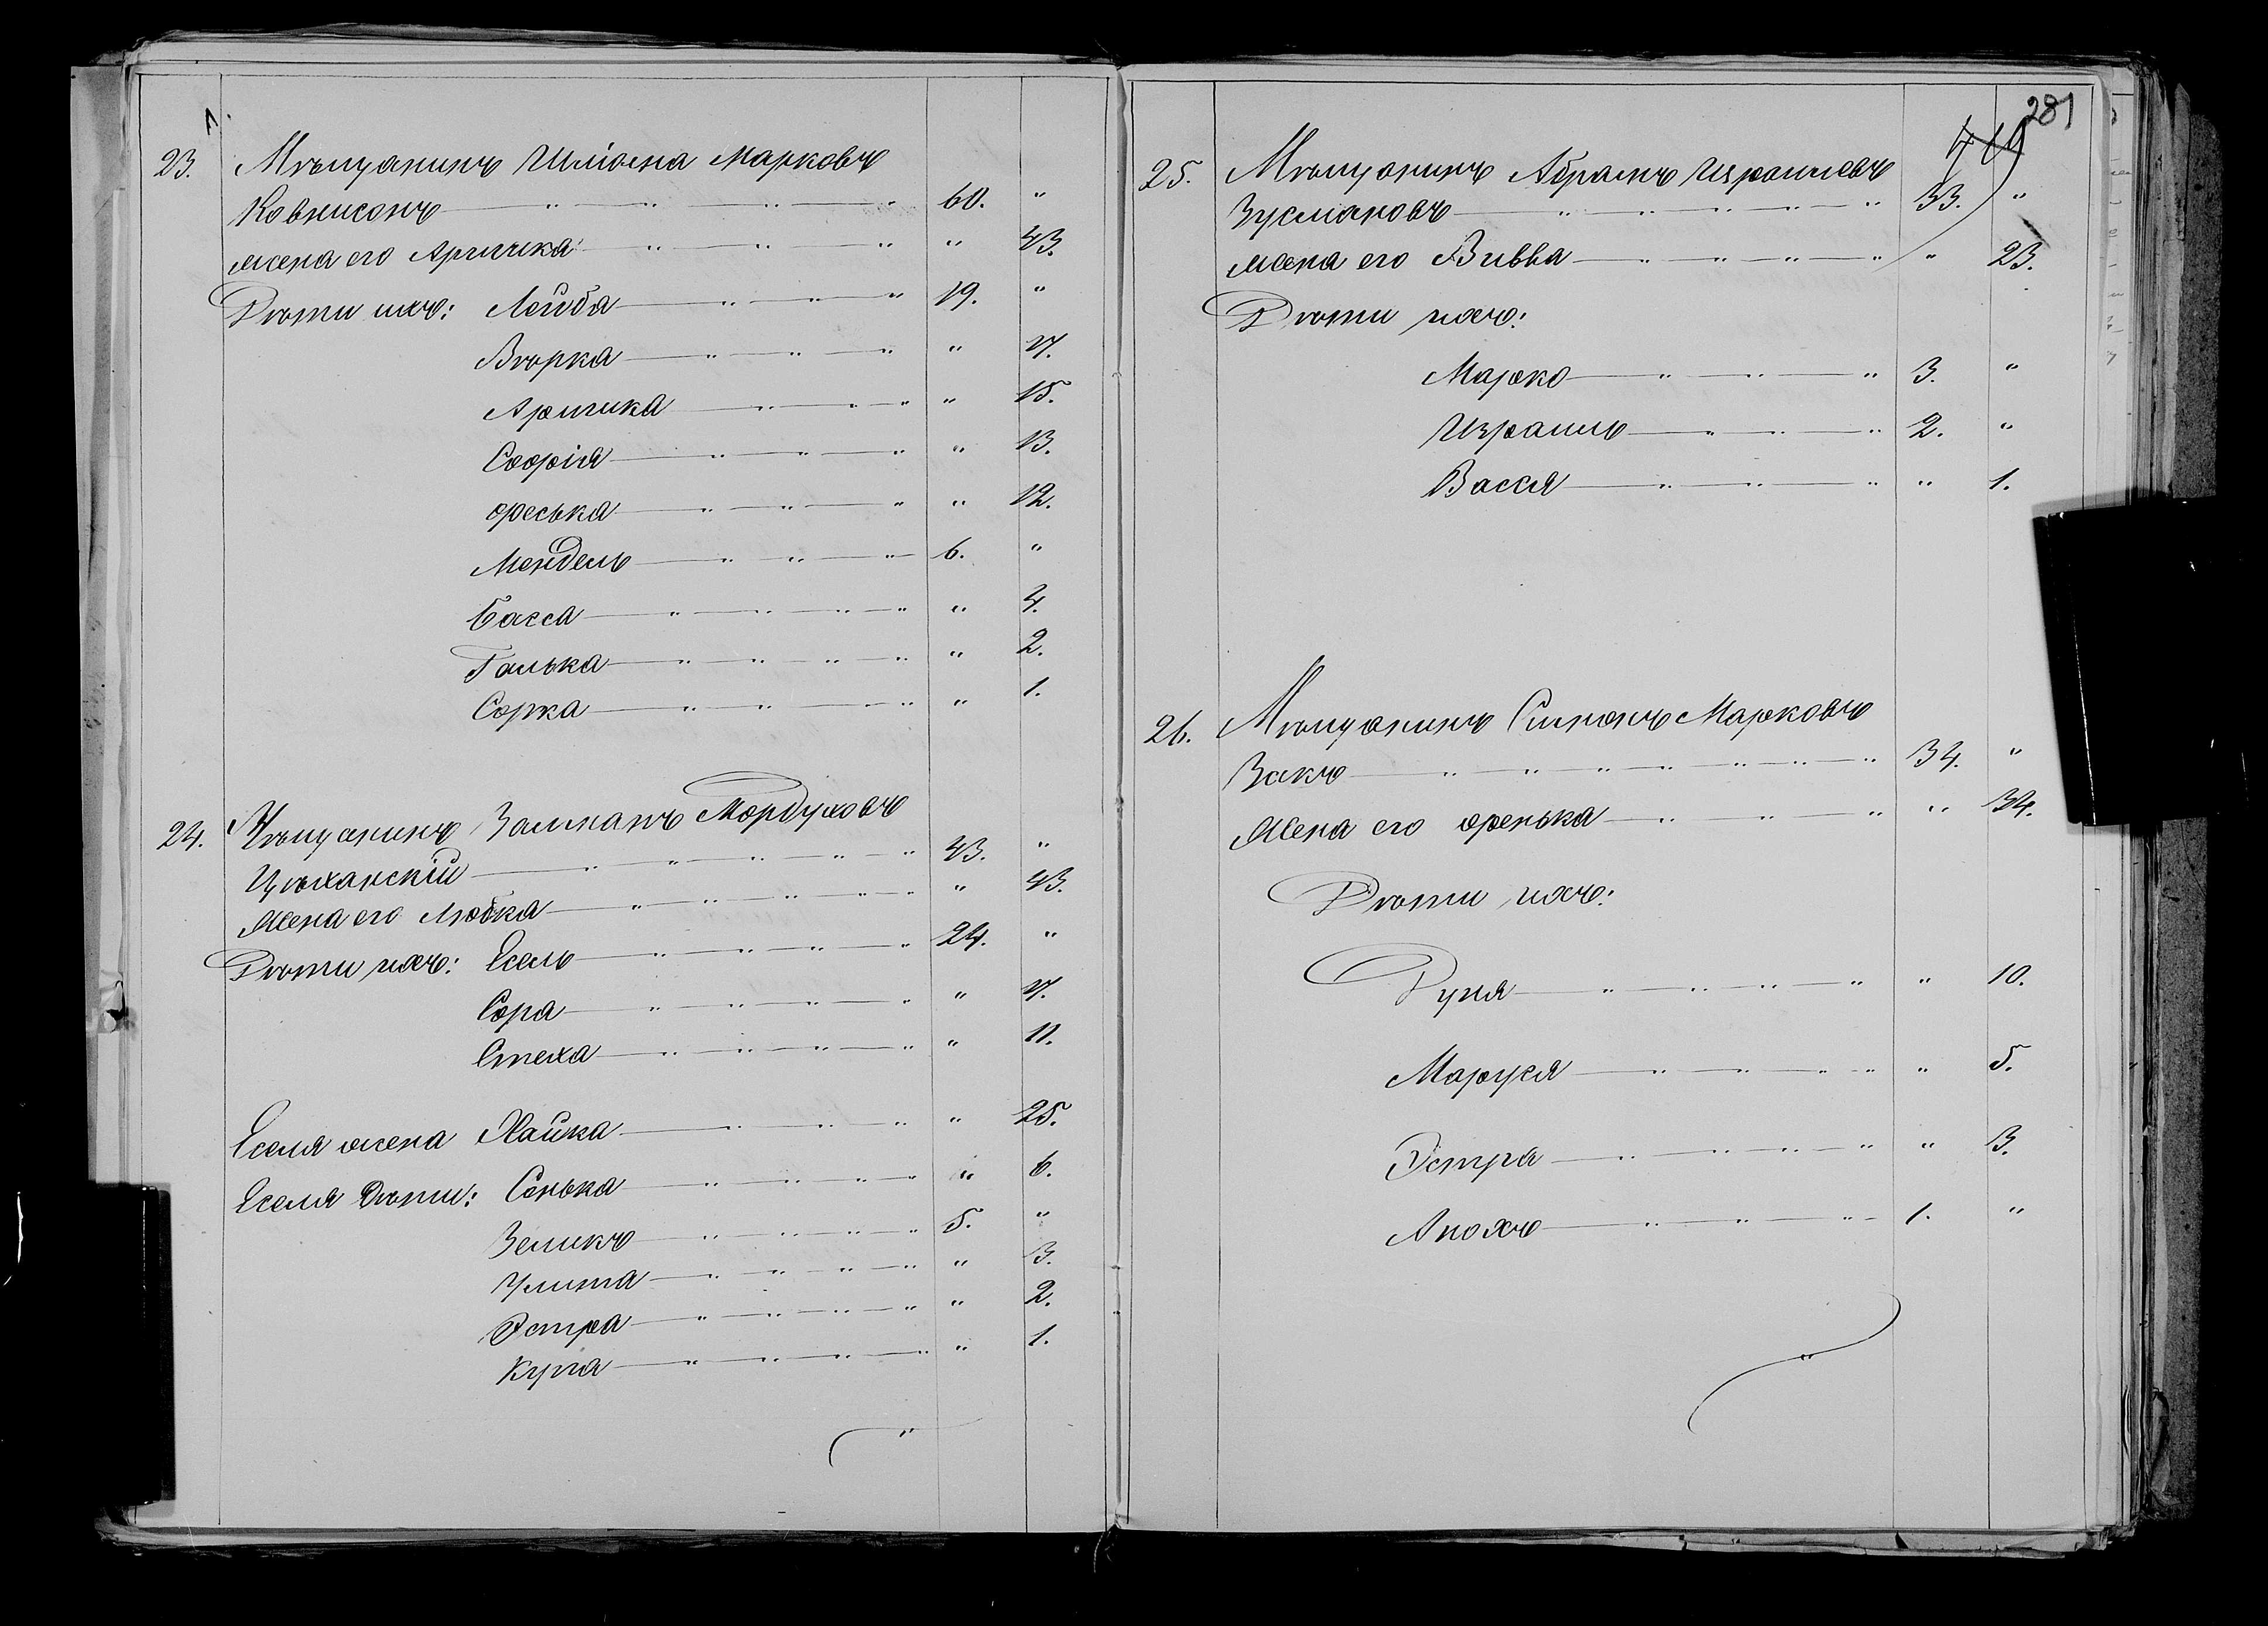 1.
23. Мѣщанинъ Шліома Марковъ
Ковнисонъ — " — " — " — " 60. "
жена его Аричка — " — " — " " 43.
Дѣти ихъ: Лейба — " — " — " 19. "
Вѣрка — " — " — " " 17.
Аричка — " — " — " " 15.
Софія — " — " — " " 13.
Фреська — " — " — " " 12.
Мендель — " — " — " — 6. "
Басса — " — " — " — " " 4.
Галька — " — " — " — " " 2.
Сорка — " — " — " " 1.
24. Мѣщанинъ Залманъ Мордуховъ
Цѣханскій — " — " — " — " — " 43. "
Жена его Любка — " — " — " — " — " " 43.
Дѣти ихъ: Есель — " — " — " — " 24. "
Сора — " — " — " — " " 17.
Стеха — " — " — " — " " 11.
Еселя жена Хайка — " — " — " " 25.
Еселя дѣти: Сонька — " — " — " — " " 6.
Зеликъ — " — " — " — " 5. "
Улита — " — " — " — " " 3.
Эстра — " — " — " — " " 2.
Куна — " — " — " — " " 1.
281
25. Мѣщанинъ Абрамъ Израилевъ
Зусмановъ — " — " — " — " — " 33. "
жена его Вивва — " — " — " — " " 23.
Дѣти ихъ:
Марко — " — " — " 3. "
Израиль — " — " — " 2. "
Васся — " — " — " " 1.
26. Мѣщанинъ Симонъ Марковъ
Закъ — " — " — " — " — " — " — " 34. "
Жена его Френька — " — " — " " 34.
Дѣти ихъ:
Дуня — " — " — " — " " 10.
Маруся — " — " — " — " " 5.
Эстра — " — " — " — " " 3.
Анохъ — " — " — " — 1. "